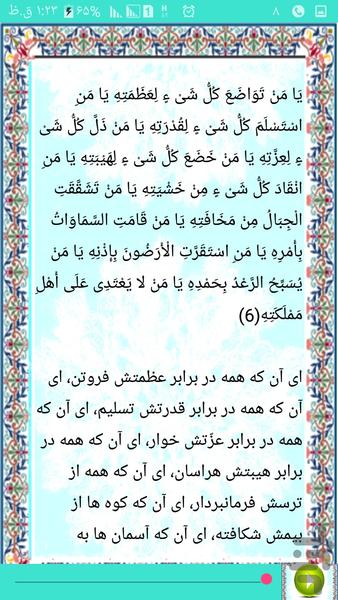 ۱:۲۳ ق.ظ ۶۵% ۸
یَا مَنْ تَوَاضَعَ کُلُّ شَیْ ءٍ لِعَظَمَتِهِ یَا مَنِ
اسْتَسْلَمَ کُلُّ شَیْ ءٍ لِقُدْرَتِهِ یَا مَنْ ذَلَّ کُلُّ شَیْ
ءٍ لِعِزَّتِهِ یَا مَنْ خَضَعَ کُلُّ شَیْ ءٍ لِهَیْبَتِهِ یَا مَنِ
انْقَادَ کُلُّ شَیْ ءٍ مِنْ خَشْیَتِهِ یَا مَنْ تَشَقَّقَتِ
الْجِبَالُ مِنْ مَخَافَتِهِ یَا مَنْ قَامَتِ السَّمَاوَاتُ
بِأَمْرِهِ یَا مَنِ اسْتَقَرَّتِ الْأَرَضُونَ بِإِذْنِهِ یَا مَنْ
یُسَبِّحُ الرَّعْدُ بِحَمْدِهِ یَا مَنْ لا یَعْتَدِی عَلَی أَهْلِ
مَمْلَکَتِهِ(6)
ای آن که همه در برابر عظمتش فروتن، ای
آن که همه در برابر قدرتش تسلیم، ای آن که
همه در برابر عزّتش خوار، ای آن که همه در
برابر هیبتش هراسان، ای آن که همه از
ترسش فرمانبردار، ای آن که کوه ها از
بیمش شکافته، ای آن که آسمان ها به